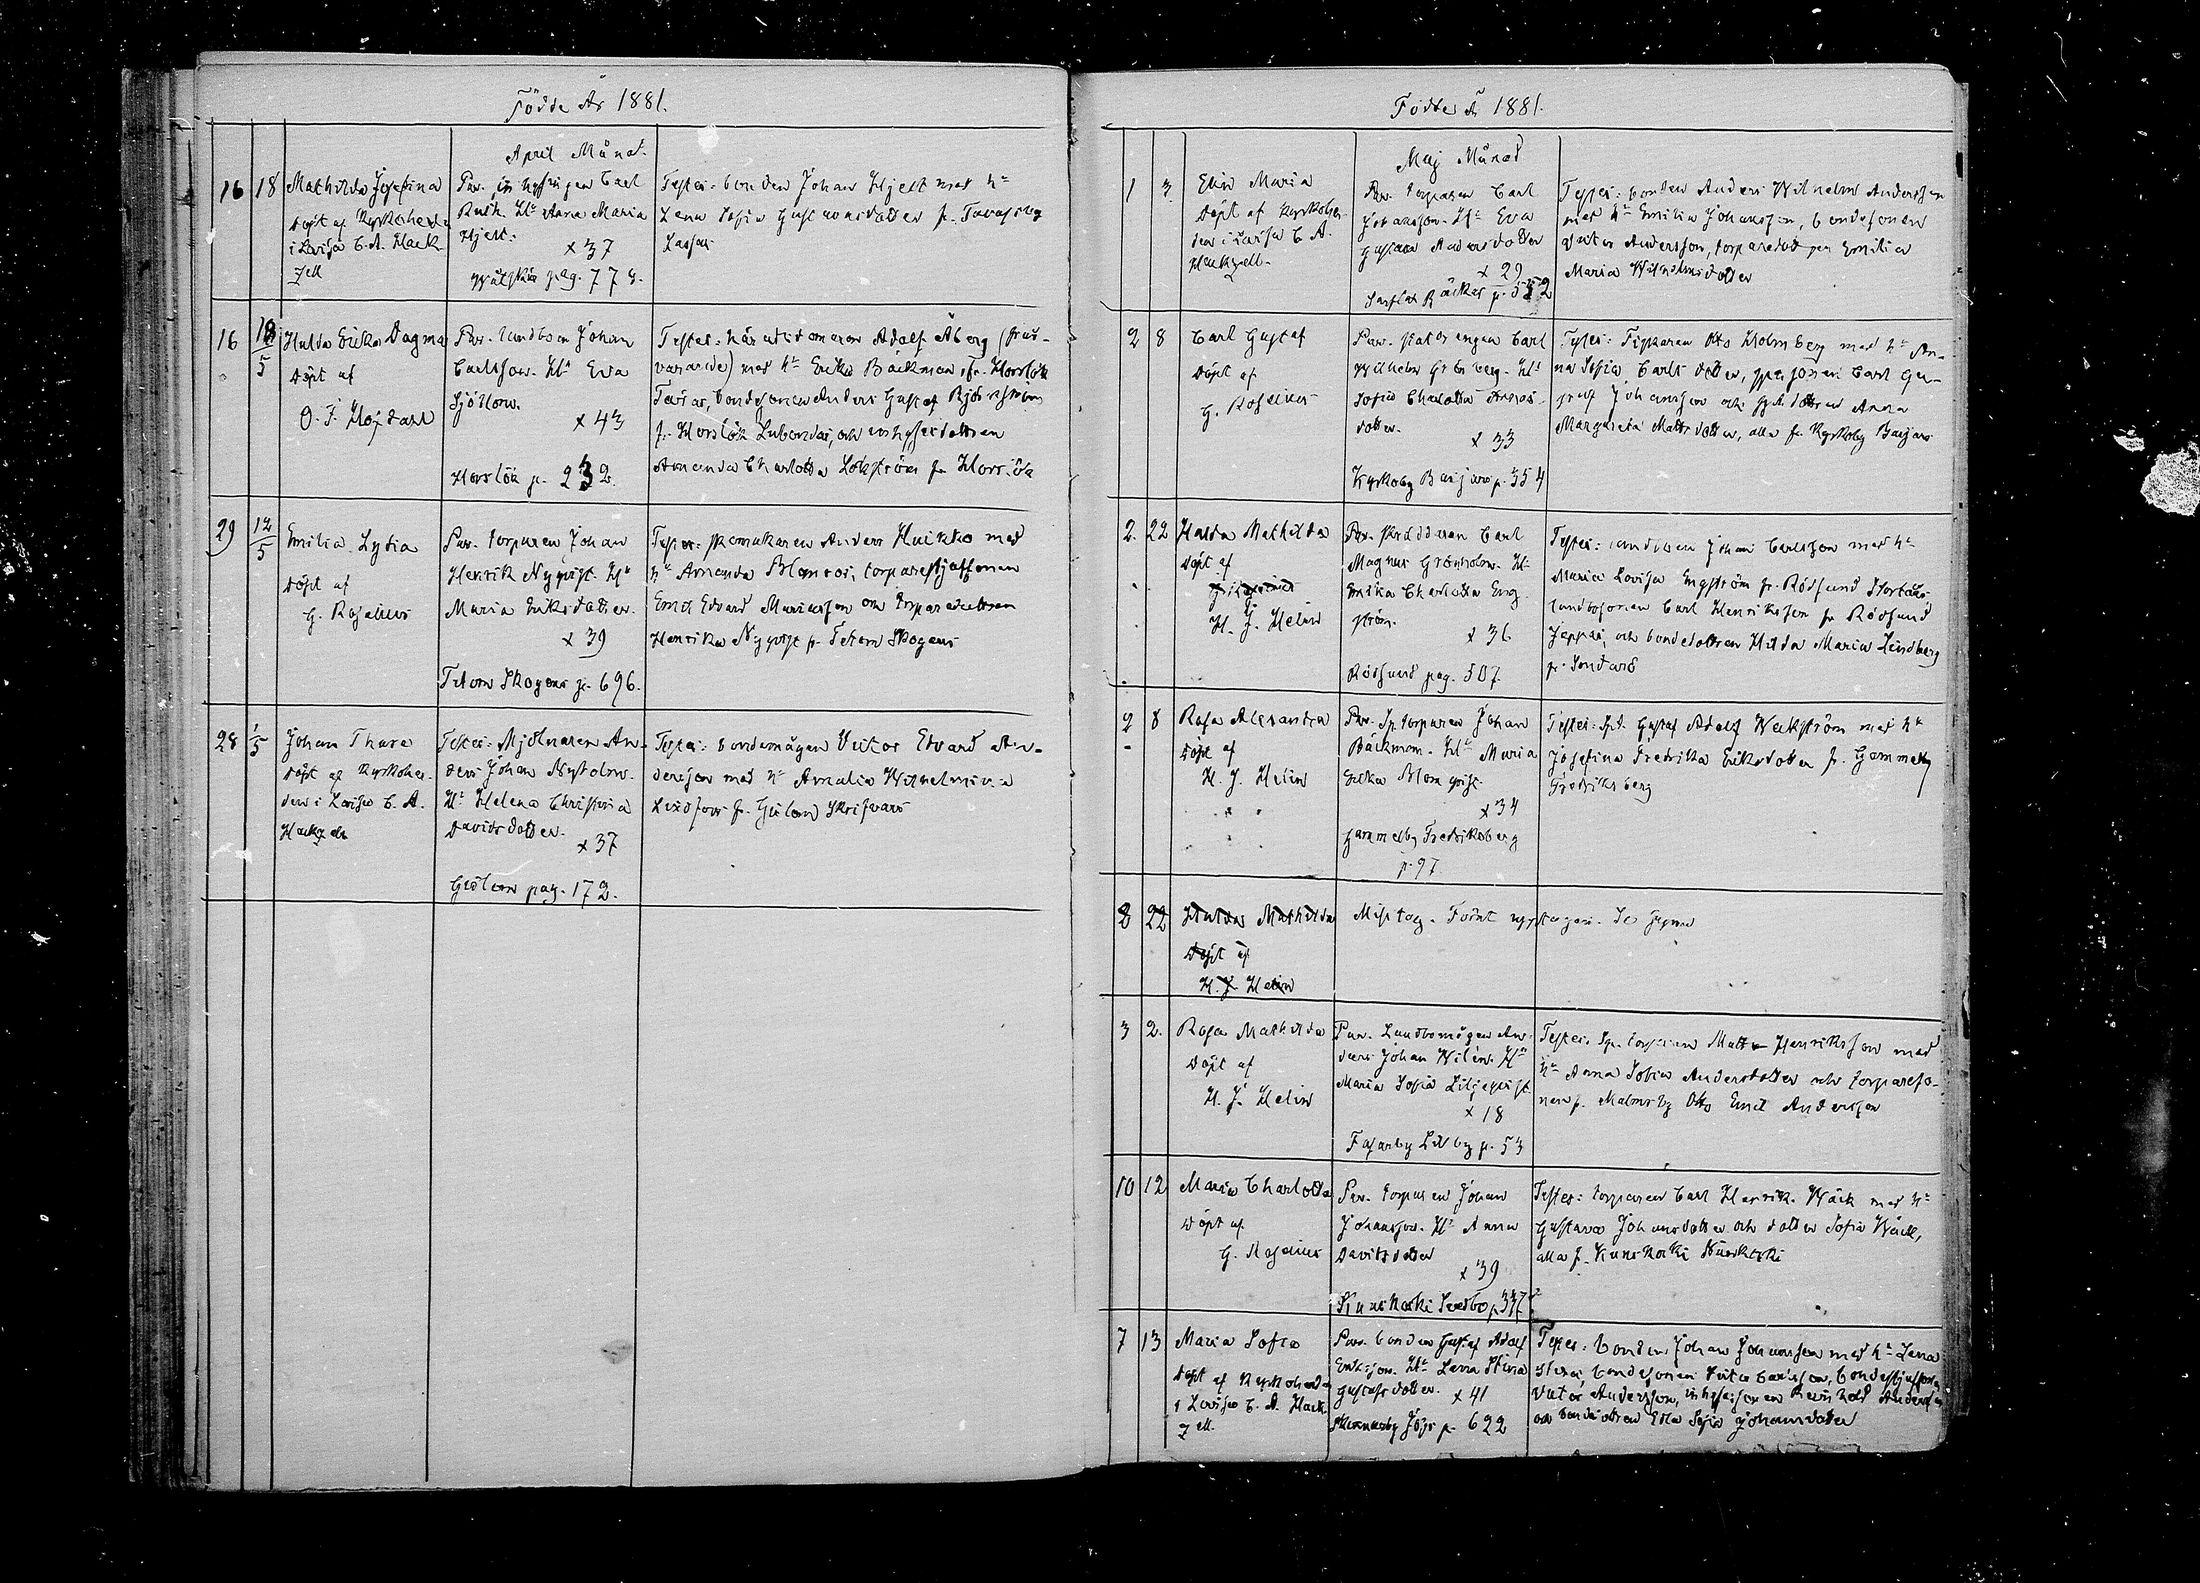 Födde År 1881.
April Månad.
16 18 Mathilda Josefina
döpt af Kyrkoherden
i Lovisa C. A. Hack
zell
Par. inhysingen Carl
Rusk. Hu Anna Maria
Hjelt.
x 37
pag. 773.
Testes: bonden Johan Hjelt med hu
Lena Sofia Gustavsdotter fr. Tavastby
Lassas
16 18/5 Hulda Erika Dagmar
döpt af
O. F. Hofdahl
Par. landbon Johan
Carlsson. Hu Eva
Sjöblom.
x 43
Horslök p. 232.
Testes: häradsdomaren Adolf Åberg (frånvarande)
med hu Erika Bäckman, fr. Horslök
bondesonen Anders Gustaf Björkström
fr. Horslök Lubondas, och inhysesdottren
Amanda Charlotta Lökström fr. Horslök
29 12/5 Emilia Lydia
döpt af
G. Roselius
Par. torparen Johan
Henrik Nyqvist. Hu
Maria Eriksdotter.
x 39
Tetom Skogens p. 696.
Testes: skomakaren Anders Huikko med
hu Amanda Blomros, torparestjuffsonen
Emil Edvard Mariasson och torparedottren
Henrika Nyqvist fr. Tetom Skogens
28 1/5 Johan Thure
döpt af Kyrkoherden
i Lovisa C. A.
Hackzell
Testes: Mjölnaren Anders
Johan Nyholm.
Hu Helena Christina
Davidsdotter.
x 37
pag. 172.
Testes: bondemågen Victor Edvard Andersson
med hu Amalia Wilhelmina
Lindfors fr. Skrifvars
Födde År 1881.
Maj Månad
1 3 Elin Maria
döpt af Kyrkoherden
i Lovisa C. A.
Hackzell.
Par. torparen Carl
Johansson. Hu Eva
Gustava Andersdotter
x 29
Sarflax Bäckas p. 552
Testes: bonden Anders Wilhelm Andersson
med hu Emilia Johansson, bondesonen
Victor Andersson, torparedot. Emilia
Maria Wilhelmsdotter
2 8 Carl Gustaf
döpt af
G. Roselius
Par. statdrengen Carl
Wilhelm Grönberg. Hu
Sofia Charlotta Andersdotter.
x 33
Kyrkoby Barjars p. 354
Testes: Fiskaren Otto Holmberg med hu Anna
Sofia Carlsdotter, sonen Carl Gustaf
Johansson och dottren Anna
Margareta Mattsdotter, alla fr. Kyrkoby Barjars
2. 22 Hulda Mathilda
döpt af
H. J. Helin
Par. skräddaren Carl
Magnus Grönholm. Hu
Erika Charlotta Engström.
x 36
Rödsund pag. 507
Testes: landbon Johan Carlsson med hu
Maria Lovisa Engström fr. Rödsund
landbosonen Carl Henriksson fr. Rödsund
Jeppas, och bondedottren Hilda Maria Lindberg
fr. Sondarö
2 8 Rosa Alexandra
döpt af
H. J. Helin
Par. Sp. torparen Johan
Bäckman. Hu Maria
Erika Blomqvist.
x 34
Gammelby Fredriksberg
p. 97.
Testes: Sp.t. Gustaf Adolf Weckström med hu
Josefina Fredrika Eriksdotter fr. Gammelby
Fredriksberg
8 22 Hulda Mathilda
döpt af
H. J. Helin
Misstag. Förut upptagen. Se
3 2. Rosa Mathilda
döpt af
H. J. Helin
Par. Landbomågen Anders
Johan Wilén. Hu
Maria Sofia Liljeqvist
x 18
Fasarby Lillby p. 53
Testes. Sp. torparen Matts Henriksson med
hu Anna Sofia Andersdotter och torparesonen
fr. Malmsby Otto Emil Andersson
10 12 Maria Charlotta
döpt af
G. Roselius
Par. torparen Johan
Johansson. Hu Anna
Davidsdotter
x 39
Kuuskoski Svedbo p. 337
Testes: torparen Carl Henrik Wäck med hu
Gustava Johansdotter och dotter Sofia Wäck,
alla fr. Kuuskoski
7 13 Maria Sofia
döpt af Kyrkoherden
i Lovisa C. A. Hack
zell.
Par. bonden Gustaf Adolf
Eriksson. Hu Lena Stina
Gustafsdotter. x 41
p. 622
Testes: bonden Johan Johansson med hu Lena
Stina, bondesonen Victor Carlsson,
Victor Andersson, inhysessonen Reinhold Andersson
och bondedottren Eva Sofia Johansdotter